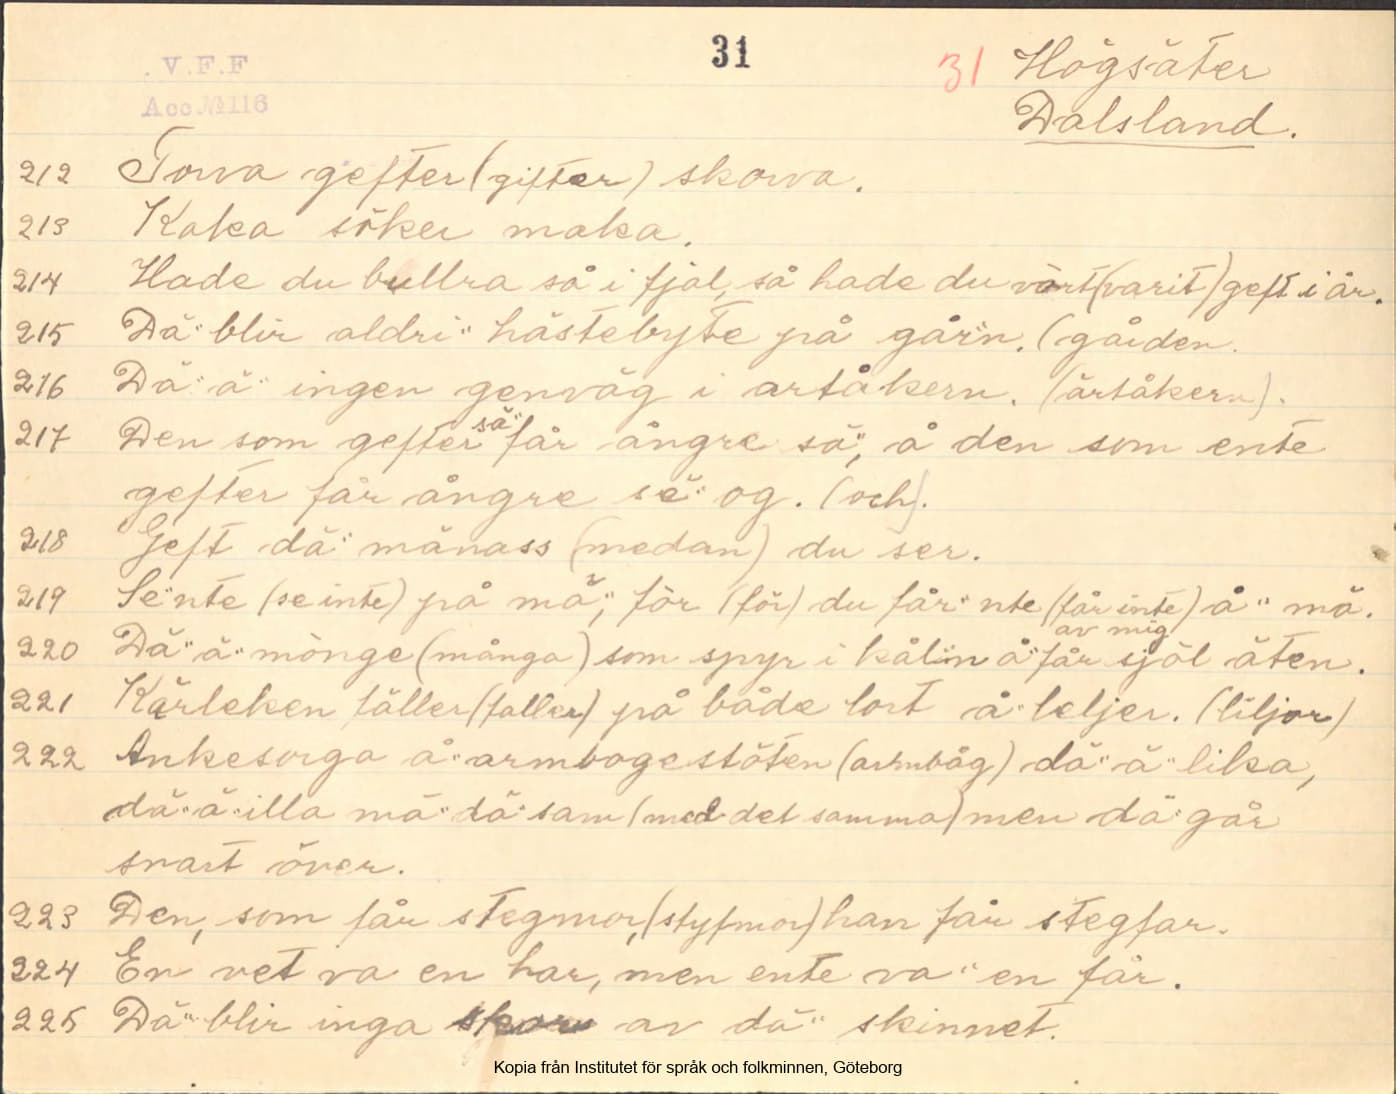 V.F.F
Acc.№116
31
31 Högsäter
Dalsland.
212 Torva gefter (gifter) skorva.
213 Kaka söker maka.
214 Hade du bullra så i fjol, så hade du vört (varit) geft i år.
215 Dä" blir aldri" hästebyte på går'n. (gården.
216 Dä" ä" ingen genväg i artåkern. (ärtåkern).
217 Den som gefter sä" får ångre sä", å den som ente
gefter får ångre sä" og. (och).
218 Geft dä" mänass (medan) du ser.
219 Se"nte (se inte) på mä", för (för) du får"nte (får inte) å" mä.
220 Dä" ä" mönge (många) som spyr i kålin å" får själ äten.
av mig
221 Kärleken fäller (faller) på både lort å" leljer. (liljor)
222 Ankesorga å" armbogestöten (armbåg) dä" ä" lika,
dä" ä" illa mä" dä" sam (med det samma) men dä" går
snart över.
223 Den, som får stegmor, (styfmor) han får stegfar.
224 En vet va en har, men ente va" en får.
225 Dä" blir inga skor av dä" skinnet.
Kopia från Institutet för språk och folkminnen, Göteborg